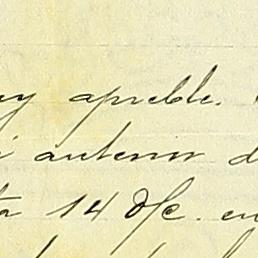 ey apreble.
i anterior d
ta 14 d/c. en